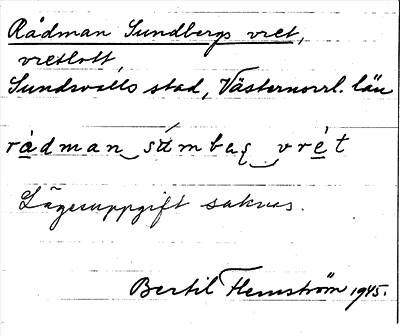 Rådman Sundbergs vret,
vretlott
Sundsvalls stad, Västernorrl. län
rådman sámbaʂ vrét
Lägesuppgift saknas.
Bertil Flemström 1945.